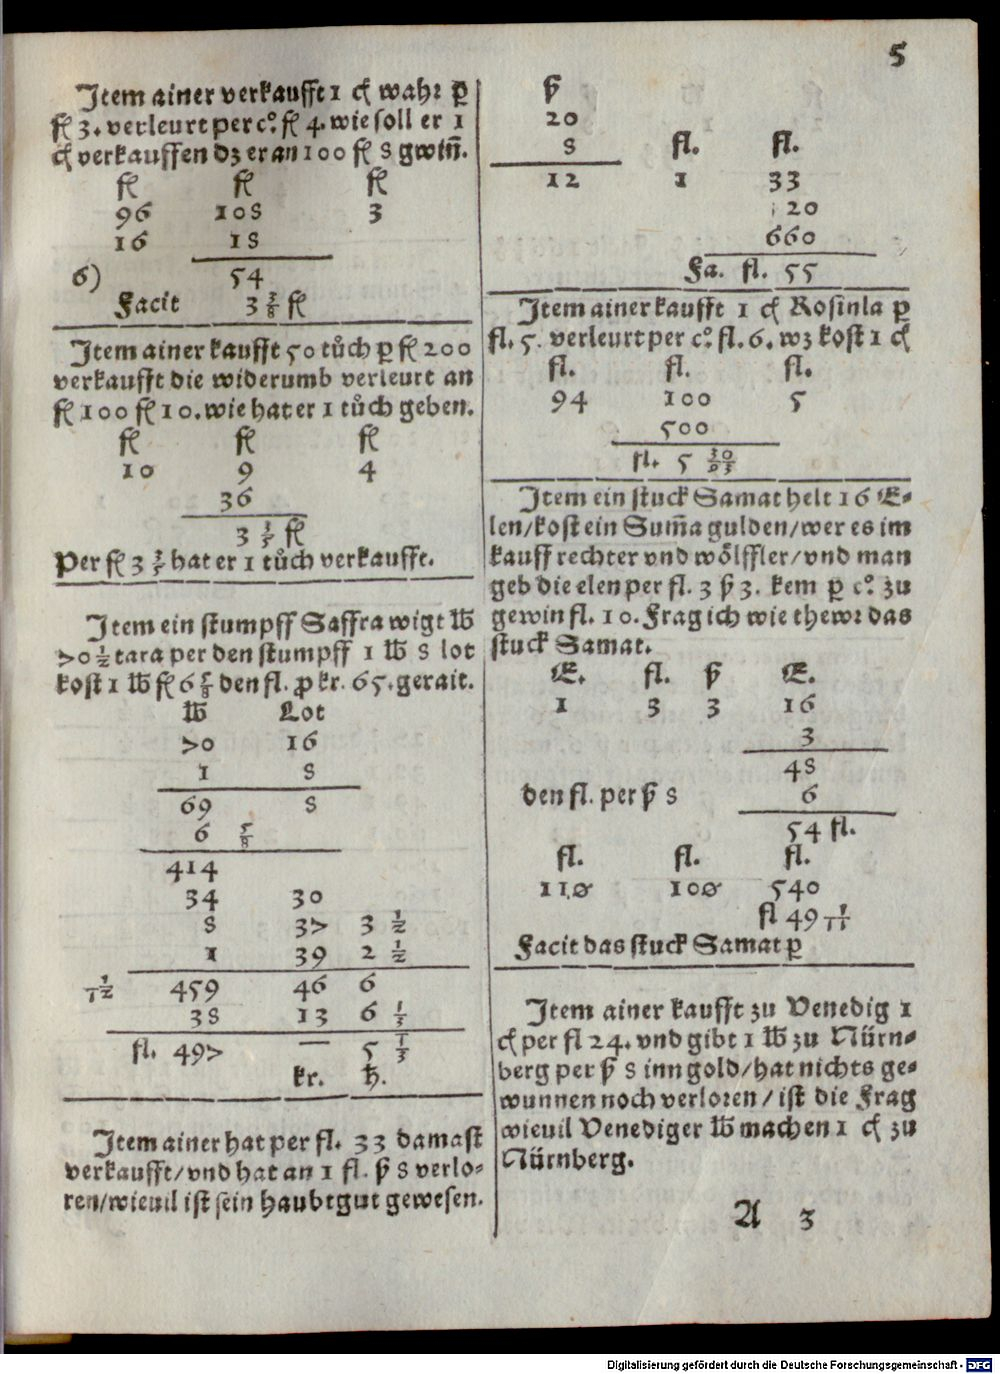 5
Item ainer verkaufft 1 ꝯ wahr ꝑ
fl 3. verleurt per cͦ. fl 4. wie soll er 1
ꝯ verkauffen dz er an 100 fl 8 gwiñ.
fl fl fl
96 108 3
16 18
6) 54
Facit 3 3/8 fl
Item ainer kaufft 50 tůch ꝑ fl 200
verkaufft die widerumb verleurt an
fl 100 fl 10. wie hat er 1 tůch geben.
fl fl fl
10 9 4
36
3 3/5 fl
Per fl 3 3/5 hat er 1 tůch verkaufft.
Item ein stumpff Saffra wigt ℔
70 1/2 tara per den stumpff 1 ℔ 8 lot
kost 1 ℔ fl 6 5/8 den fl. ꝓ kr. 65. gerait.
℔ Lot
70 16
1 8
69 8
6 5/8
414
34 30
8 37 3 1/2
1 39 2 1/2
1/12 459 46 6
38 13 6 1/3
fl. 497 — 5 1/3
kr. ₰.
Item ainer hat per fl. 33 damast
verkaufft/vnd hat an 1 fl. ß 8 verlo⸗
ren/wieuil ist sein haubtgut gewesen.
ß
20
8 fl. fl.
12 1 33
20
660
Fa. fl. 55
Item ainer kaufft 1 ꝯ Rosinla ꝑ
fl. 5. verleurt per cͦ. fl. 6. wz kost 1 ꝯ
fl. fl. fl.
94 100 5
500
fl. 5 30/94
Item ein stuck Samat helt 16 E⸗
len/kost ein Sum̃a gulden/wer es im
kauff rechter vnd wölffler/vnd man
geb die elen per fl. 3 ß 3. kem ꝑ cͦ. zu
gewin fl. 10. Frag ich wie thewr das
stuck Samat.
E. fl. ß E.
1 3 3 16
3
48
den fl. per ß 8 6
54 fl.
fl. fl. fl.
110 100 540
fl 49 1/11
Facit das stuck Samat ꝑ
Item ainer kaufft zu Venedig 1
ꝯ per fl 24. vnd gibt 1 ℔ zu Nürn⸗
berg per ß 8 inn gold/hat nichts ge⸗
wunnen noch verloren/ist die Frag
wieuil Venediger ℔ machen 1 ꝯ zu
Nürnberg.
A 3
Digitalisierung gefördert durch die Deutsche Forschungsgemeinschaft - DFG